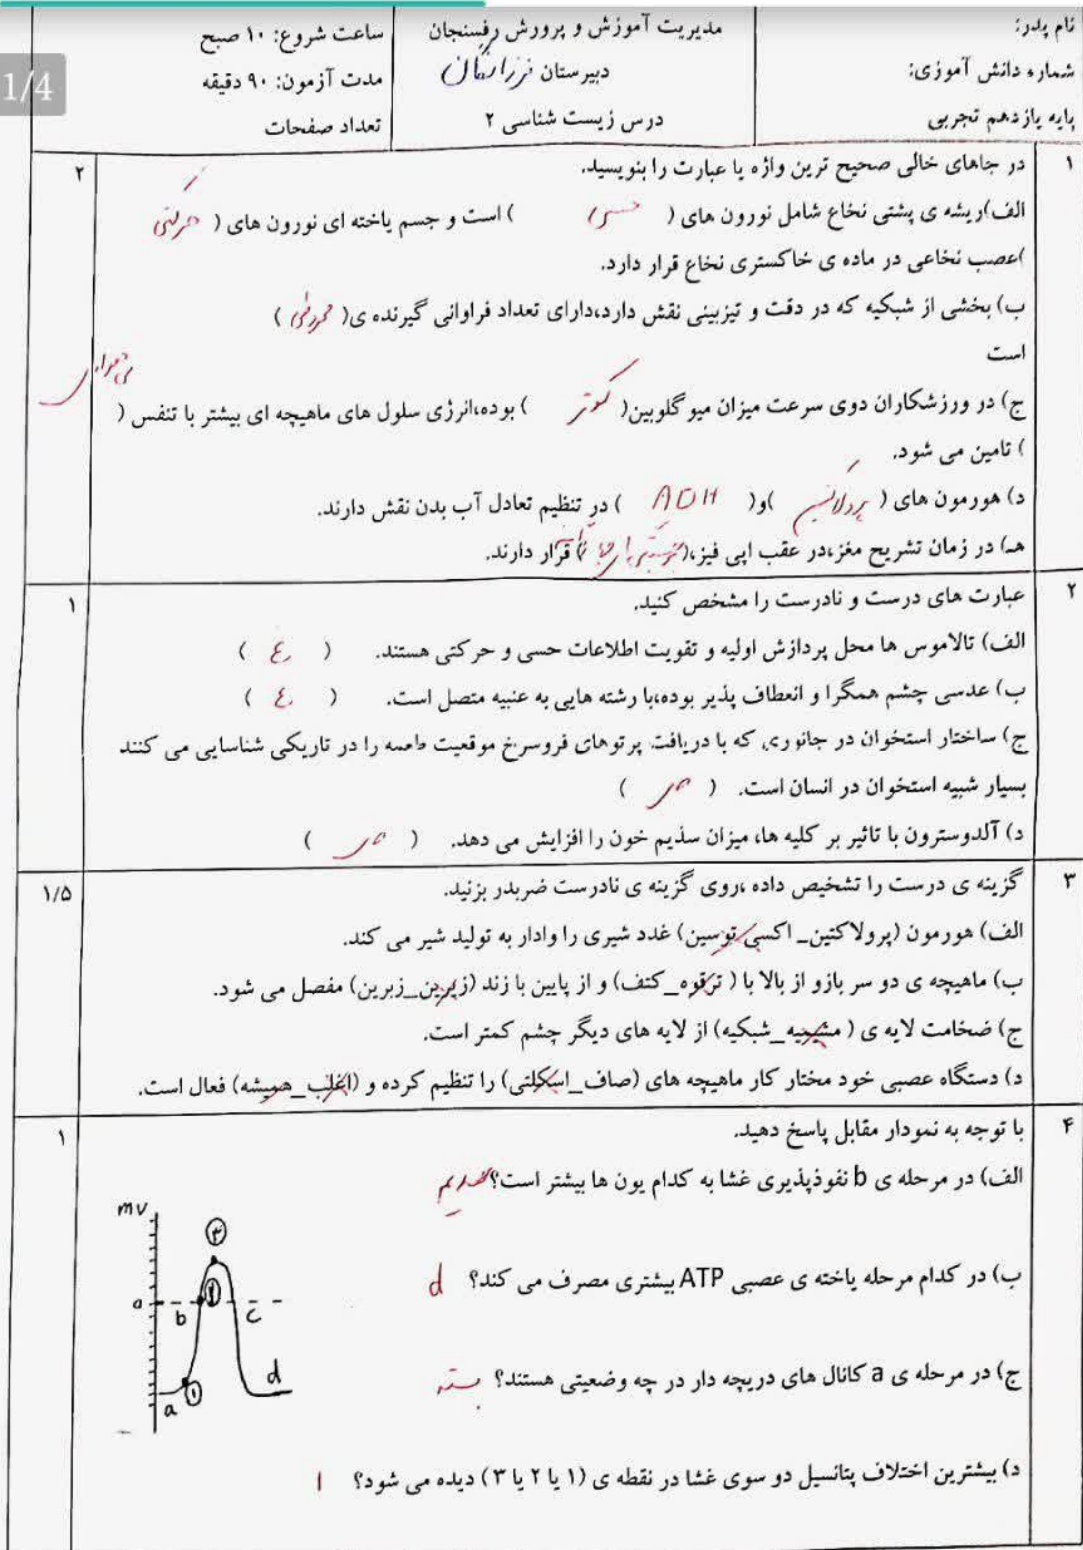 1/4
نام پدر:
مدیریت آموزش و پرورش رفسنجان
ساعت شروع: ۱۰ صبح
شماره دانش آموزی:
دبیرستان فرزانگان
مدت آزمون: ۹۰ دقیقه
پایه یازدهم تجربی
درس زیست شناسی ۲
تعداد صفحات
۱ در جاهای خالی صحیح ترین واژه یا عبارت را بنویسید. ۲
الف)ریشه ی پشتی نخاع شامل نورون های ( حسی ) است و جسم یاخته ای نورون های ( حرکتی
)عصب نخاعی در ماده ی خاکستری نخاع قرار دارد.
ب) بخشی از شبکیه که در دقت و تیزبینی نقش دارد،دارای تعداد فراوانی گیرنده ی( مخروطی )
است
ج) در ورزشکاران دوی سرعت میزان میو گلوبین( کمتر ) بوده،انرژی سلول های ماهیچه ای بیشتر با تنفس ( بی هوازی
) تامین می شود.
د) هورمون های ( پرولاکتین )و( ADH ) در تنظیم تعادل آب بدن نقش دارند.
هـ) در زمان تشریح مغز،در عقب اپی فیز،( ) قرار دارند.
۲ عبارت های درست و نادرست را مشخص کنید. ۱
الف) تالاموس ها محل پردازش اولیه و تقویت اطلاعات حسی و حرکتی هستند. ( غ )
ب) عدسی چشم همگرا و انعطاف پذیر بوده،با رشته هایی به عنبیه متصل است. ( غ )
ج) ساختار استخوان در جانوری که با دریافت پرتوهای فروسرخ موقعیت طعمه را در تاریکی شناسایی می کنند
بسیار شبیه استخوان در انسان است. ( ص )
د) آلدوسترون با تاثیر بر کلیه ها، میزان سدیم خون را افزایش می دهد. ( ص )
۳ گزینه ی درست را تشخیص داده ،روی گزینه ی نادرست ضربدر بزنید. ۱/۵
الف) هورمون (پرولاکتین_ اکسی توسین) غدد شیری را وادار به تولید شیر می کند.
ب) ماهیچه ی دو سر بازو از بالا با ( ترقوه_کتف) و از پایین با زند (زیرین_زبرین) مفصل می شود.
ج) ضخامت لایه ی ( مشیمیه_شبکیه) از لایه های دیگر چشم کمتر است.
د) دستگاه عصبی خود مختار کار ماهیچه های (صاف_اسکلتی) را تنظیم کرده و (اغلب_همیشه) فعال است.
۴ با توجه به نمودار مقابل پاسخ دهید. ۱
الف) در مرحله ی b نفوذپذیری غشا به کدام یون ها بیشتر است؟ سدیم
ب) در کدام مرحله یاخته ی عصبی ATP بیشتری مصرف می کند؟ d
ج) در مرحله ی a کانال های دریچه دار در چه وضعیتی هستند؟ بسته
د) بیشترین اختلاف پتانسیل دو سوی غشا در نقطه ی (۱ یا ۲ یا ۳) دیده می شود؟ ۱
mv
۳
۲
b
c
d
a
۱